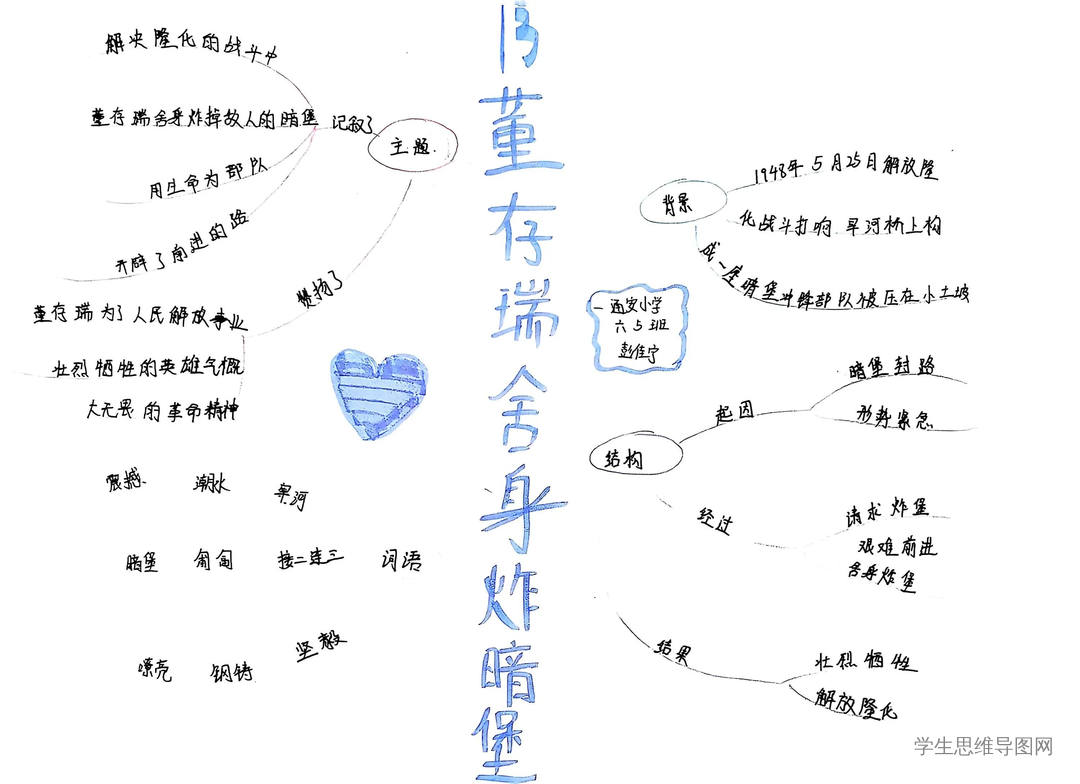 13董存瑞舍身炸暗堡
主题
记叙了
解决隆化的战斗中
董存瑞舍身炸掉敌人的暗堡
用生命为部队
开辟了前进的路
赞扬了
董存瑞为了人民解放事业
壮烈牺牲的英雄气概
大无畏的革命精神
震撼 潮水 旱河
暗堡 匍匐 接二连三 词语
嘹亮 钢铸 坚毅
背景
1948年5月25日解放隆
化战斗打响 旱河桥上构
成一座暗堡冲锋部队被压在小土坡
一通安小学
六5班
彭佳宁
结构
起因
暗堡封路
形势紧急
经过
请求炸堡
艰难前进
舍身炸堡
结果
壮烈牺牲
解放隆化
学生思维导图网